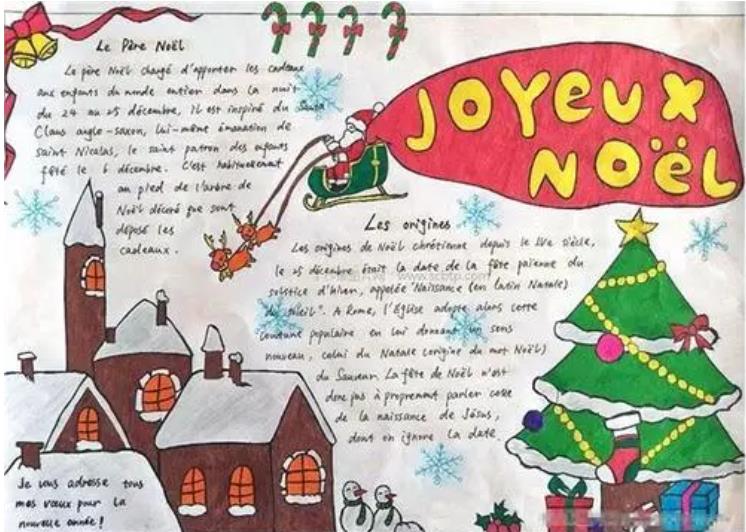 Le Père Noël
Le père Noël chargé d'apporter les cadeaux
aux enfants du monde entier dans la nuit
du 24 au 25 décembre, il est inspiré du Santa
Claus anglo-saxon, lui-même émanation de
saint Nicolas, le saint patron des enfants
fêté le 6 décembre. C'est habituellement
au pied de l'arbre de
Noël décoré que sont
déposé les
cadeaux.
JOYEUX
NOËL
Les origines
Les origines de Noël chrétienne depuis le IVe siècle,
le 25 décembre était la date de la fête païenne du
www.scbtp.com
solstice d'hiver, appelée "Naissance (en latin Natale)
du soleil". A Rome, l'Église adopte alors cette
coutume populaire en lui donnant un sens
nouveau, celui du Natale (origine du mot Noël)
du Sauveur. La fête de Noël n'est
donc pas à proprement parler celle
de la naissance de Jésus,
dont on ignore la date.
Je vous adresse tous
mes vœux pour la
nouvelle année!